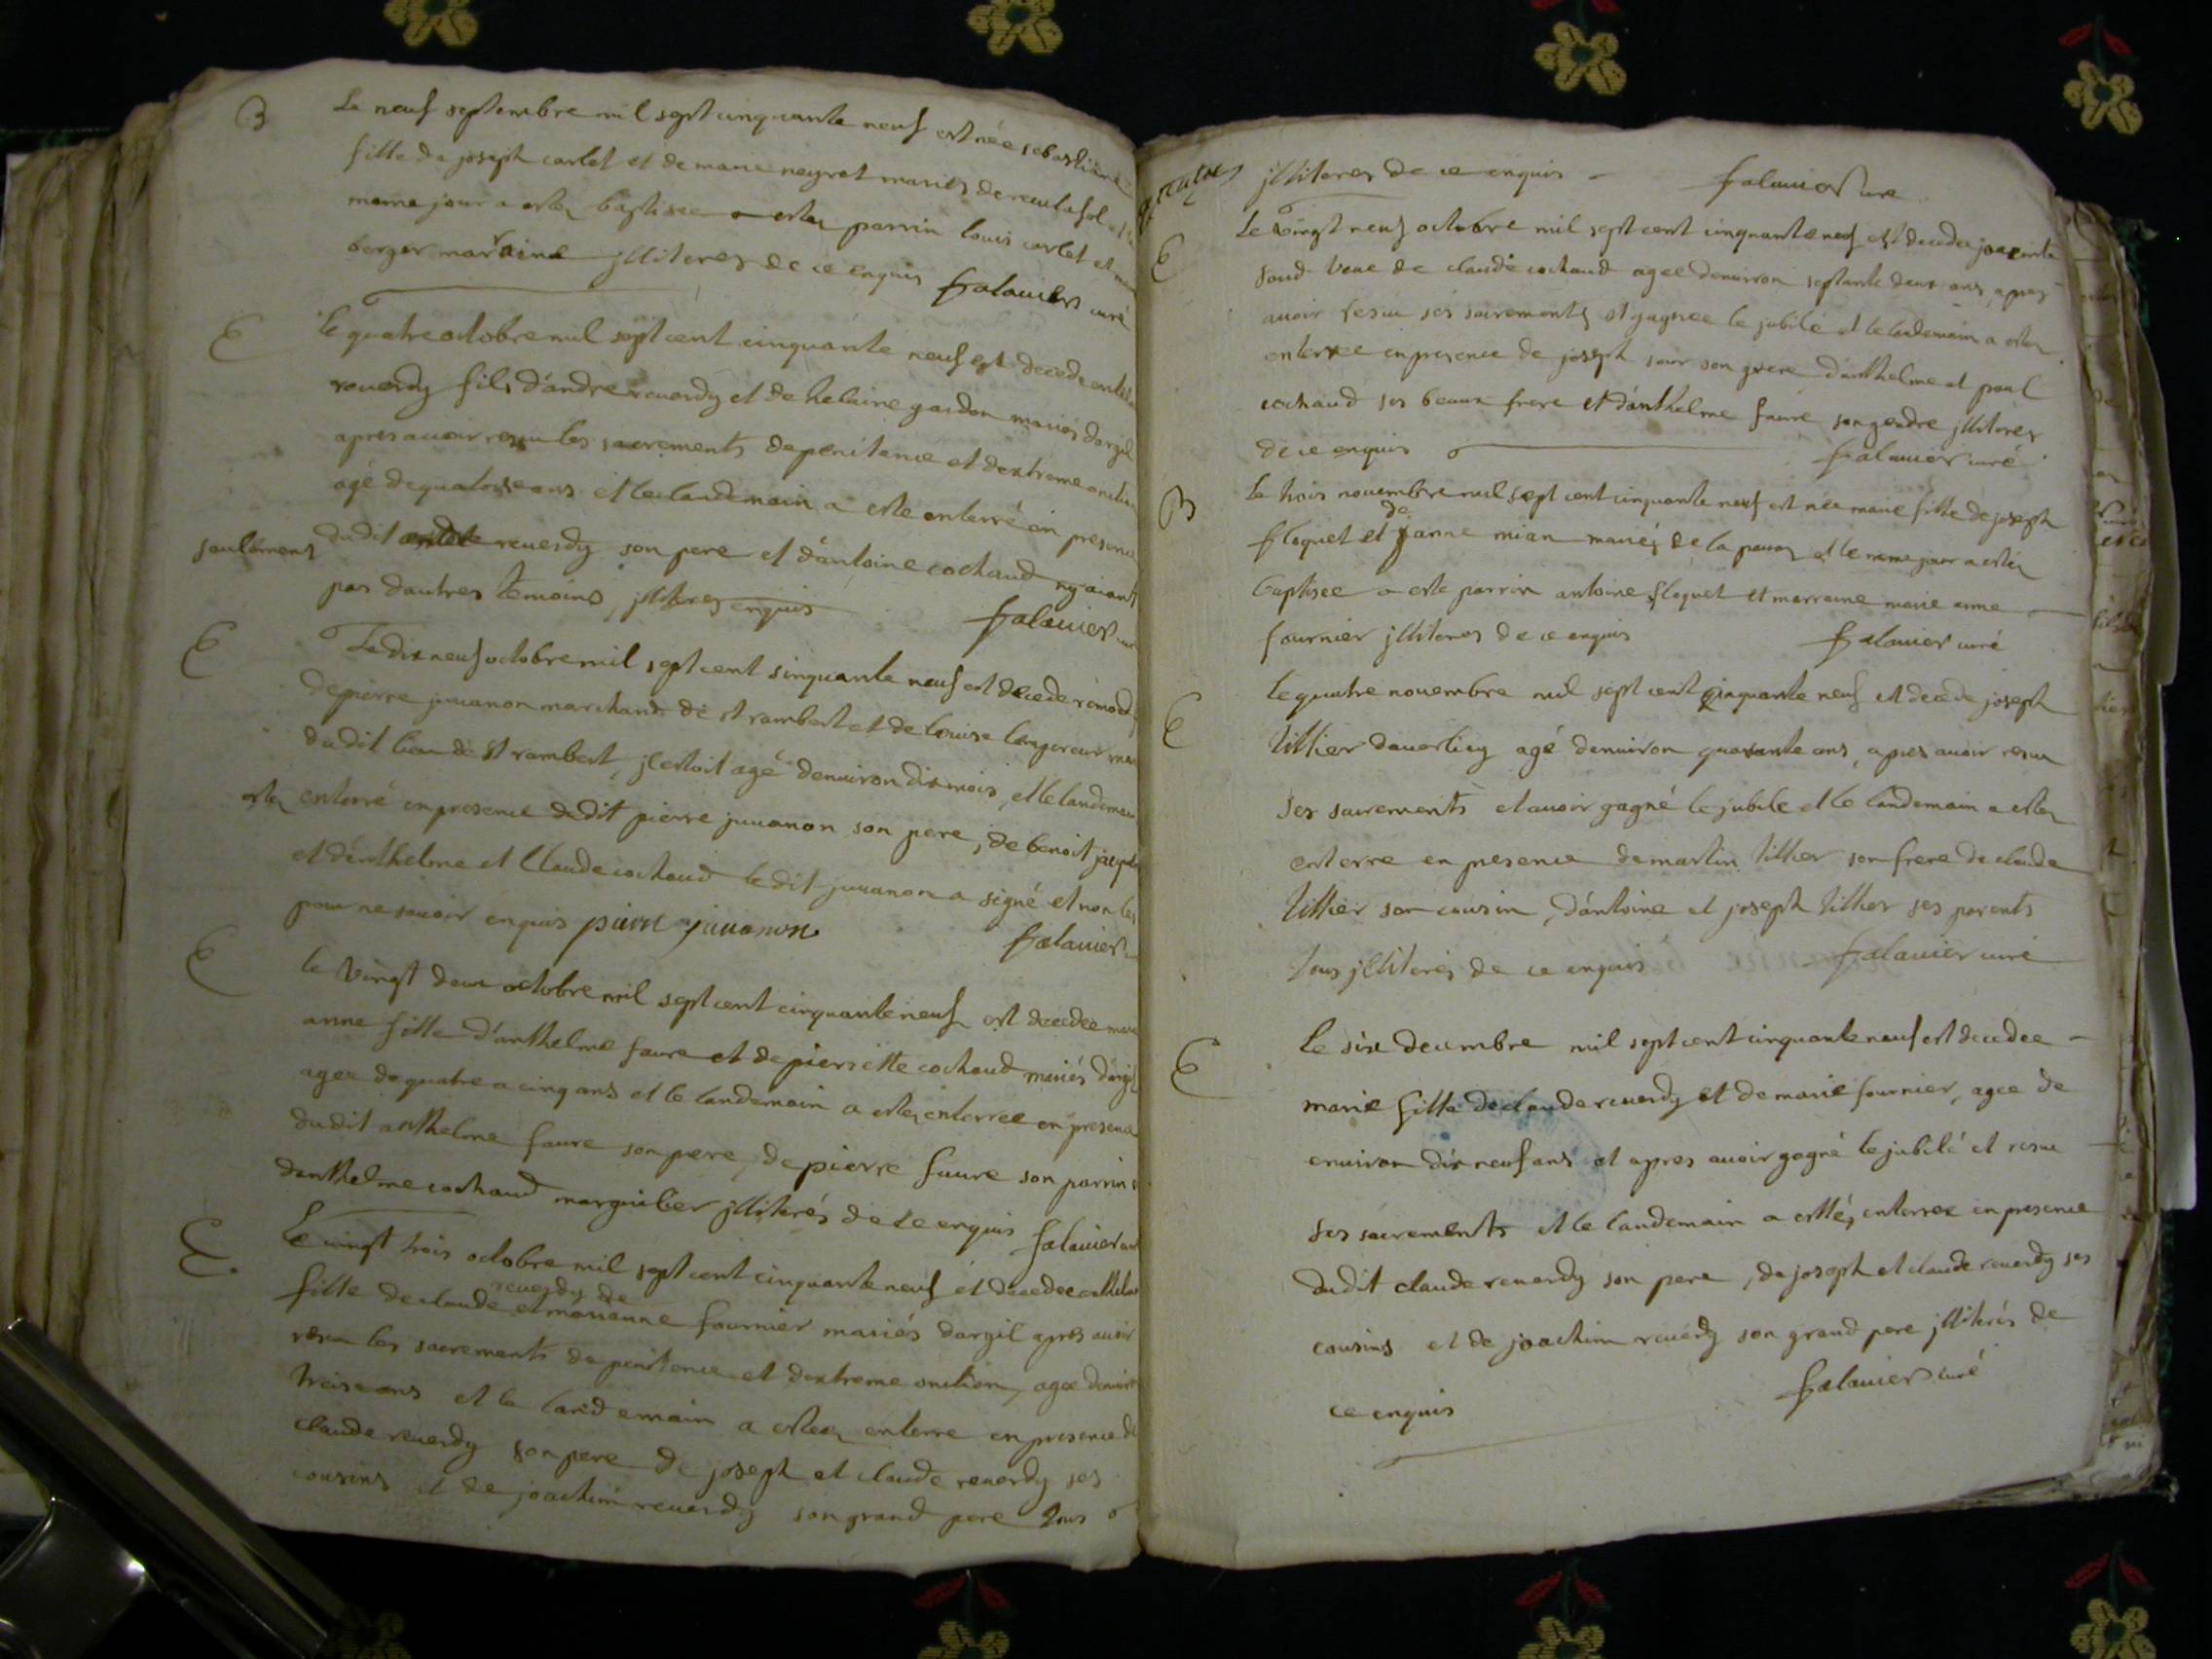 B
Le neuf septembre mil sept cinquante neuf est née sebastiane
fille de joseph carlet et de marie neyret mariés de reculafol et le
meme jour a estez baptisee a estez parrin louis carlet et
berger marraine jlliteres de ce enquis falavier curé
E
le quatre octobre mil sept cent cinquante neuf est decede
reverdy fils d'andre reverdy et de helaine gardon mariés dargil
apres avoir resu les sacrements de penitence et dextreme onction
agé de quatorse ans et le landemain a este enterré en presence
dudit reverdy son pere et d'antoine cochaud ny aiant
seulement
pas dautres temoins, jlliteres enquis falavier curé
E
Le dix neuf octobre mil sept cent sinquante neuf est decede
de pierre juvanon marchand de st rambert et de louise lempereur
dudit lieu de st rambert, jl estoit agé denviron dix mois, et le landemain
estez enterré en presence dudit pierre juvanon son pere, de benoit
et d'enthelme et Claude cochaud le dit juvanon a signé et non les
pour ne savoir enquis pierre juvanon falavier
E
le vingt deux octobre mil sept cent cinquante neuf est decedee marie
anne fille d'anthelme faure et de pierrette cochaud mariés dargil
agee de quatre a cinq ans et le landemain a estez enterree en presence
dudit anthelme faure son pere, de pierre faure son parrin
danthelme cochaud marguilier jlliterés de ce enquis falavier curé
E.
Le vingt trois octobre mil sept cent cinquante neuf et decedee
reverdy de
fille de claude et marianne fournier mariés dargil apres avoir
resu les sacrements de penitence et dextreme onction, agee denviron
treise ans et le landemain a estez enterre en presence de
claude reverdy son pere de joseph et claude reverdy ses
cousins et de joachim reverdy son grand pere tous
jlliteres de ce enquis falavier cure
E
Le vingt neuf octobre mil sept cent cinquante neuf est decedee
veue de claude cochaud agee denviron septante deux ans, apres
avoir resu ses sacrements et gagnee le jubilé et le landemain a estez
enterree en presence de joseph son d'anthelme et paul
cochaud ses beaux frere et d'anthelme faure son gendre jlliteres
de ce enquis falavier curé
B
Le trois novembre mil sept cent cinquante neuf est née marie fille de joseph
de
floquet et janne mian mariés de la et le meme jour a estez
baptisee a este parrin antoine floquet et marraine marie anne
fournier jlliteres de ce enquis falavier curé
E
le quatre novembre mil sept cent cinquante neuf est decede joseph
tillier agé denviron quarante ans, apres avoir resu
ses sacrements et avoir gagné le jubile et le landemain a estez
enterre en presence de martin tillier son frere de claude
tillier son cousin, d'antoine et joseph tillier ses parents
tous jlliterés de ce enquis falavier curé
E
Le six decembre mil sept cent cinquante neuf est decedee
marie fille de claude reverdy et de marie fournier, agee de
environ dix neuf ans et apres avoir gagné le jubilé et resu
ses sacrements et le landemain a esté enterree en presence
dudit claude reverdy son pere, de joseph et claude reverdy ses
cousins et de joachim reverdy son grand pere jlliterés de
ce enquis falavier curé